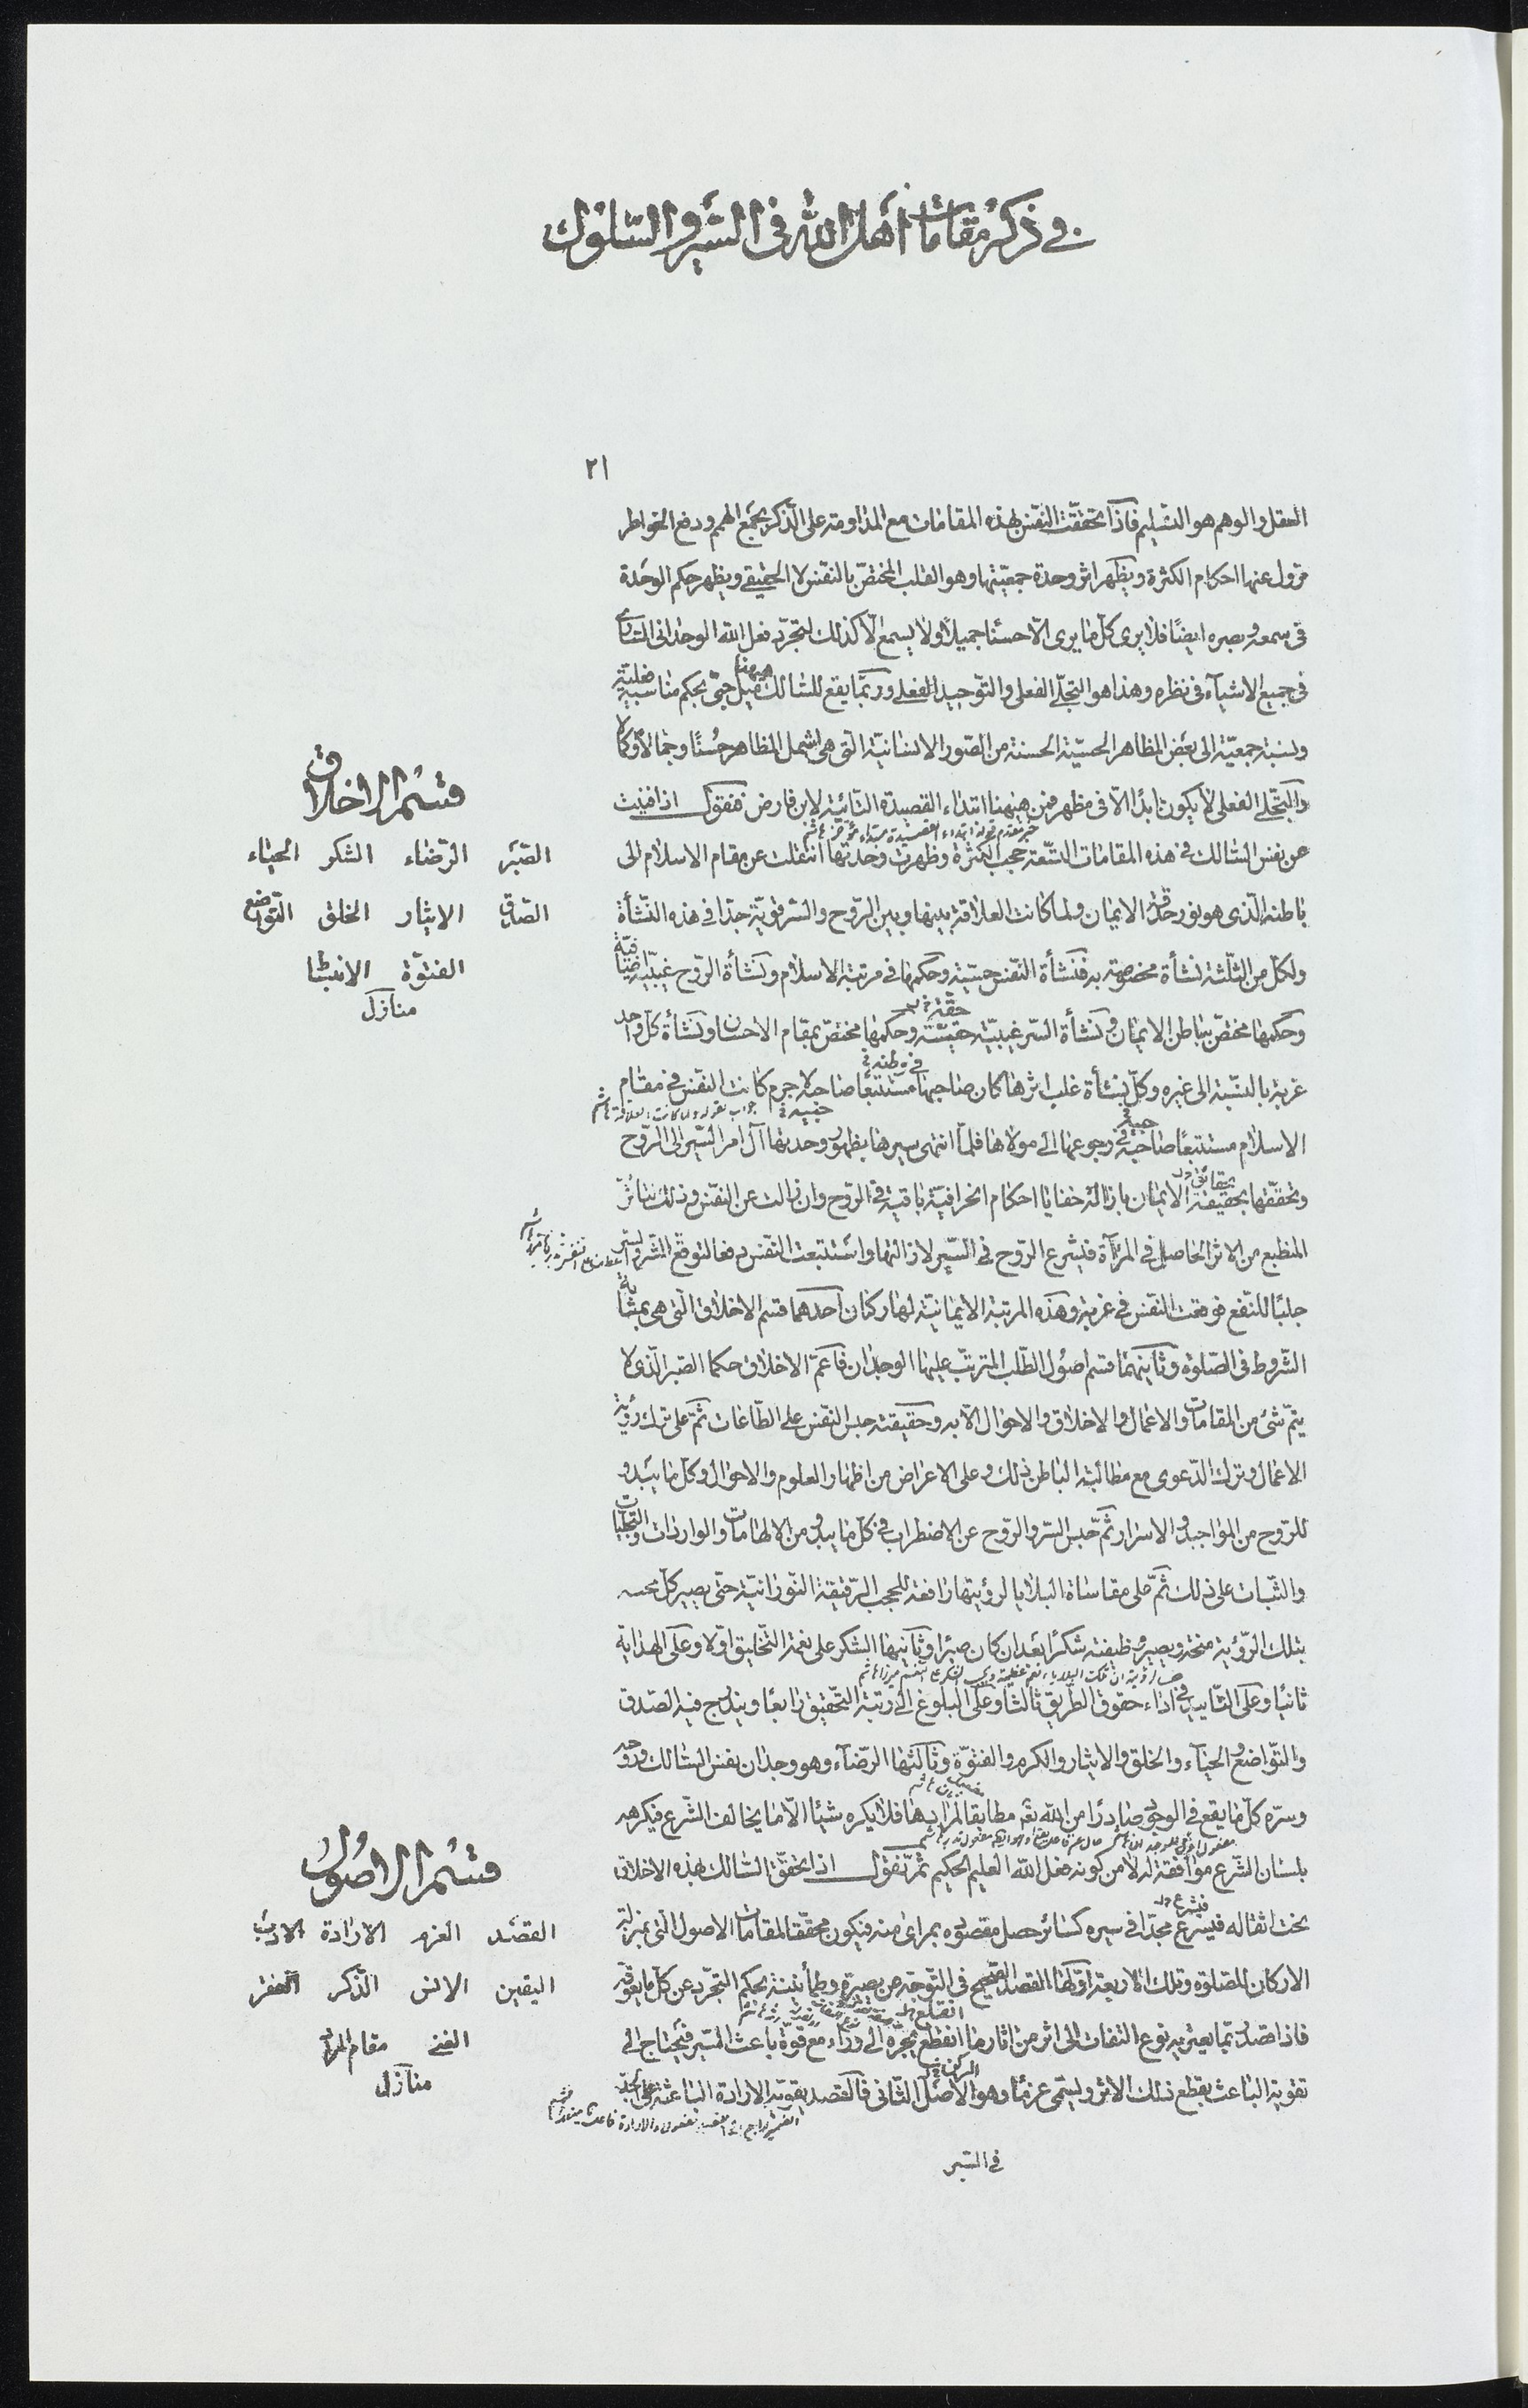 في ذكر مقامات أهل الله في السير والسلوك
٢١
العقل والوهم هو التسليم فاذا تحققت النفس بهذه المقامات مع المداومة على الذكر بجمع الهم ودفع الخواطر
تزول عنها احكام الكثرة ويظهر اثر وحدة جمعيتها وهو القلب المختص بالنفس لا الحقيقي ويظهر حكم الوحدة
في سمعه وبصره ايضا فلا يرى كل ما يرى الا حسنا جميلا ولا يسمع الا كذلك لتجرد فعل الله الوحداني الساري
في جميع الاشياء في نظره وهذا هو التجلي الفعلي والتوحيد الفعلي وربما يقع للسالك ههنا ميل حبي بحكم مناسبة فعلية
ونسبة جمعية الى بعض المظاهر الحسية الحسنة من الصور الانسانية التي هي اشمل المظاهر حسنا وجمالا وكمالا
والتجلي الفعلي لا يكون ابدا الا في مظهر فمن ههنا ابتداء القصيدة التائية لابن فارض فنقول اذا افنيت
خبر مقدم قوله ابتداء القصيدة مبتداء مؤخر هاشم
عن نفس السالك في هذه المقامات التسعة حجب الكثرة وظهرت وحدتها انتقلت عن مقام الاسلام الى
باطنه الذي هو نور حقيقة الايمان ولما كانت العلاقة بينها وبين الروح والسر قوية جدا في هذه النشأة
ولكل من الثلثة نشأة مخصوصة به فنشأة النفس حسية وحكمها في مرتبة الاسلام ونشأة الروح غيبية اضافية
وحكمها مختص بباطن الايمان ونشأة السر غيبية حقيقية وحكمها مختص بمقام الاحسان ونشأة كل واحد
غربة بالنسبة الى غيره وكل نشأة غلب اثرها كان صاحبها مستتبعا صاحبه لا جرم كانت النفس في مقام
جواب لقوله ولما كانت العلاقة هاشم
الاسلام مستتبعا صاحبيه في رجوعها الى مولاها فلما انتهى سيرها بظهور وحدتها آل امر السير الى الروح
وتحققها بحقيقة الايمان بازالة خفايا احكام انحرافية باقية في الروح وان زالت عن النفس وذلك بتأثر
المنطبع من الاثر الحاصل في المرآة فيشرع الروح في السير لازالتها واستتبعت النفس دفعا لتوقع الشر والستر
جلبا للنفع فوقعت النفس في غربة وهذه المرتبة الايمانية لها ركنان احدهما قسم الاخلاق التي هي بمثابة
الشروط في الصلوة وثانيهما قسم اصول الطلب المترتب عليها الوجدان فاعم الاخلاق حكما الصبر الذي لا
يتم شيء من المقامات والاعمال والاخلاق والاحوال الا به وحقيقته حبس النفس على الطاعات ثم على ترك رؤية
الاعمال وترك الدعوى مع مطالبة الباطن ذلك وعلى الاعراض من اظهار العلوم والاحوال وكل ما يبدو
للروح من المواجيد والاسرار ثم حبس السر والروح عن الاضطراب في كل ما يبدو من الالهامات والواردات والتجليات
والثبات على ذلك ثم على مقاساة البلايا لرؤيتها رافعة للحجب الرقيقة النورانية حتى يصير كل محنه
بتلك الرؤية منحة ويصير وظيفته شكرا بعد ان كان صبرا وثانيها الشكر على نعمة التخليق اولا وعلى الهداية
ثانيا وعلى التأييد في اداء حقوق الطريق ثالثا وعلى البلوغ الى رتبة التحقيق رابعا ويندرج فيه الصدق
والتواضع والحياء والخلق والايثار والكرم والفتوة وثالثها الرضاء وهو وجدان نفس السالك وروحه
وسره كل ما يقع في الوجود صادرا من الله تعم مطابقا لمرادها فلا يكره شيئا الا ما يخالف الشرع فيكرهه
بلسان الشرع موافقة له لا من كونه فعل الله العليم الحكيم ثم نقول اذا تحقق السالك بهذه الاخلاق
فيشرع
تحت اثقاله فيسرع مجدا في سيره كسائر حصل مقصوده بمراى منه فيكون محققا لمقامات الاصول التي بمنزلة
الاركان للصلوة وتلك الاربعة اولها القصد الصحيح في التوجه عن بصيرة وطمأنينة بحكم التجرد عن كل ما يعوقه
فاذا قصد ربما يعتريه نوع التفات الى اثر من اثار ما انقطع يجره الى وراء مع قوة باعث السير فيحتاج الى
الركن
تقوية الباعث بقطع ذلك الاثر ويسمى عزما وهو الاصل الثاني فالقصد يقويه الارادة الباعثة على الجد
في السير
قسم الاخلاق
الصبر الرضاء الشكر الحياء
الصدق الايثار الخلق التواضع
الفتوة الانبساط
منازل
قسم الاصول
القصد العزم الارادة الادب
اليقين الانس الذكر الفقر
الغنى مقام المراد
منازل